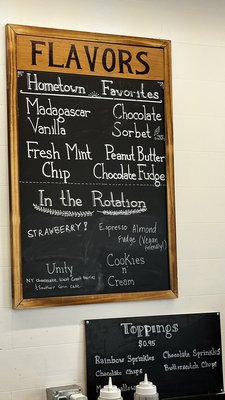 FLAVORS
Hometown Favorites
Madagascar
Vanilla
Chocolate
Sorbet
Fresh Mint
Chip
Peanut Butter
Chocolate Fudge
In the Rotation
STRAWBERRY!
Espresso Almond
Fudge (Vegan
friendly!)
Unity
NY Cheesecake,
Cake
Cookies
n'
Cream
Toppings
$0.95
Rainbow Sprinkles
Chocolate Chips
Chocolate Sprinkles
Butterscotch Chips